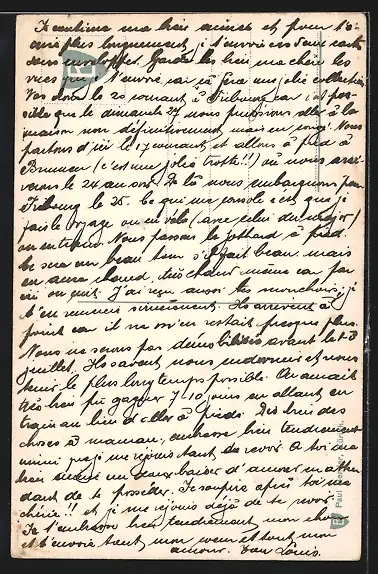 Je continue ma bien aimée et pour t'é-
crire plus longuement, je t'envoie ces deux cartes
sans enveloppe. Garde les bien ma chère les
vues que je t'envoie car ça fera une jolie collection
donc le 20 courant à Fribourg car il est pos-
sible que le dimanche 27 nous puissions aller à la
maison non définitivement mais en congé. Nous
partons d'ici le 17 courant et allons à pied à
Brunnen (c'est une jolie trotte!!) où nous arri-
verons le 24 au soir. De là nous embarquons pour
Fribourg le 25. Ce qui me console c'est que je
fais le voyage ou en vélo (avec celui du major)
ou en train. Nous passons le Gothard à pied.
Ce sera un beau tour s'il fait beau mais
on aura chaud, très chaud même car par
ici on cuit. J'ai reçu aussi tes mouchoirs, je
t'en remercie sincèrement. Ils arrivent à
point car il ne m'en restait presque plus.
Nous ne serons pas démobilisés avant le 1-3
juillet. Ils savent nous endormir et nous
tenir le plus longtemps possible. On aurait
très bien pu gagner 7-10 jours en allant en
train au lieu d'aller à pieds. Dis bien des
choses à maman, embrasse bien tendrement
mimi que je me réjouis tant de revoir. A toi ma
bien aimée un doux baiser d'amour en atten-
dant de te posséder. Je soupire après toi ma
chérie!! et je me réjouis déjà de te revoir.
Je t'embrasse bien tendrement mon chou
et t'envoie tout mon cœur et tout mon
amour. Ton Louis.
Paul Zürich.